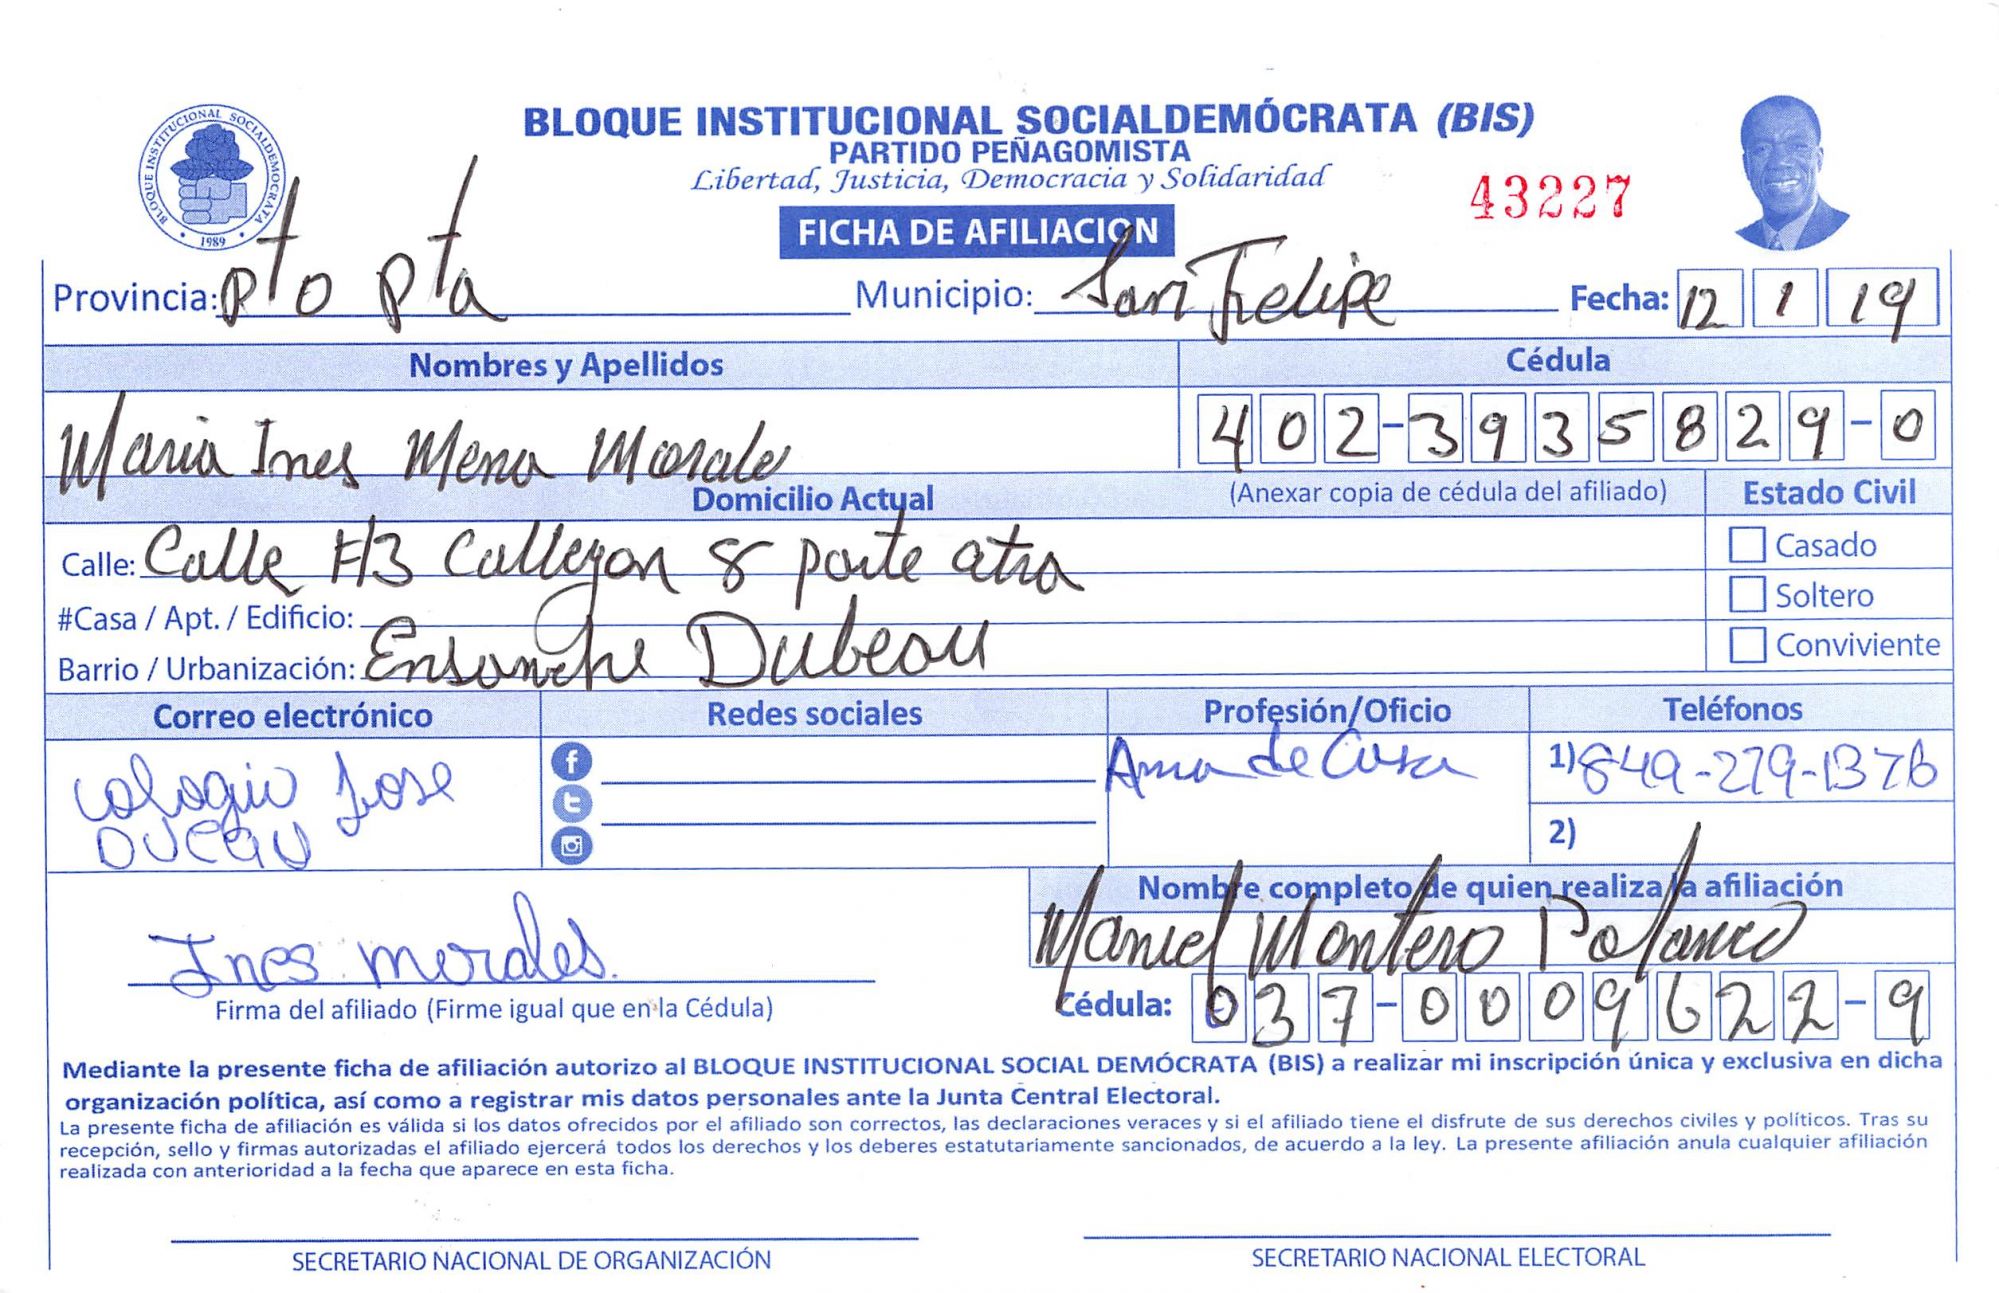 BLOQUE INSTITUCIONAL SOCIALDEMÓCRATA (BIS)
PARTIDO PEÑAGOMISTA
Libertad, Justicia, Democracia y Solidaridad
BLOQUE INSTITUCIONAL SOCIALDEMOCRATA
1989
43227
FICHA DE AFILIACION
Provincia: Pto Pta Municipio: San Felipe Fecha: 12 1 19
Nombres y Apellidos Cédula
Maria Ines Mena Morale 402-3935829-0
Domicilio Actual (Anexar copia de cédula del afiliado) Estado Civil
Calle: Calle #13 Callegon 8 parte atra
Casado
#Casa / Apt. / Edificio:
Soltero
Barrio / Urbanización: Ensanche Dubeau
Conviviente
Correo electrónico Redes sociales Profesión/Oficio Teléfonos
Cologio Jose Ama de Casa 1) 849-279-1376
DUCAU
2)
Nombre completo de quien realiza la afiliación
Ines morales. Manuel Montero Polanco
Firma del afiliado (Firme igual que en la Cédula) Cédula: 037-0009622-9
Mediante la presente ficha de afiliación autorizo al BLOQUE INSTITUCIONAL SOCIAL DEMÓCRATA (BIS) a realizar mi inscripción única y exclusiva en dicha
organización política, así como a registrar mis datos personales ante la Junta Central Electoral.
La presente ficha de afiliación es válida si los datos ofrecidos por el afiliado son correctos, las declaraciones veraces y si el afiliado tiene el disfrute de sus derechos civiles y políticos. Tras su
recepción, sello y firmas autorizadas el afiliado ejercerá todos los derechos y los deberes estatutariamente sancionados, de acuerdo a la ley. La presente afiliación anula cualquier afiliación
realizada con anterioridad a la fecha que aparece en esta ficha.
SECRETARIO NACIONAL DE ORGANIZACIÓN SECRETARIO NACIONAL ELECTORAL